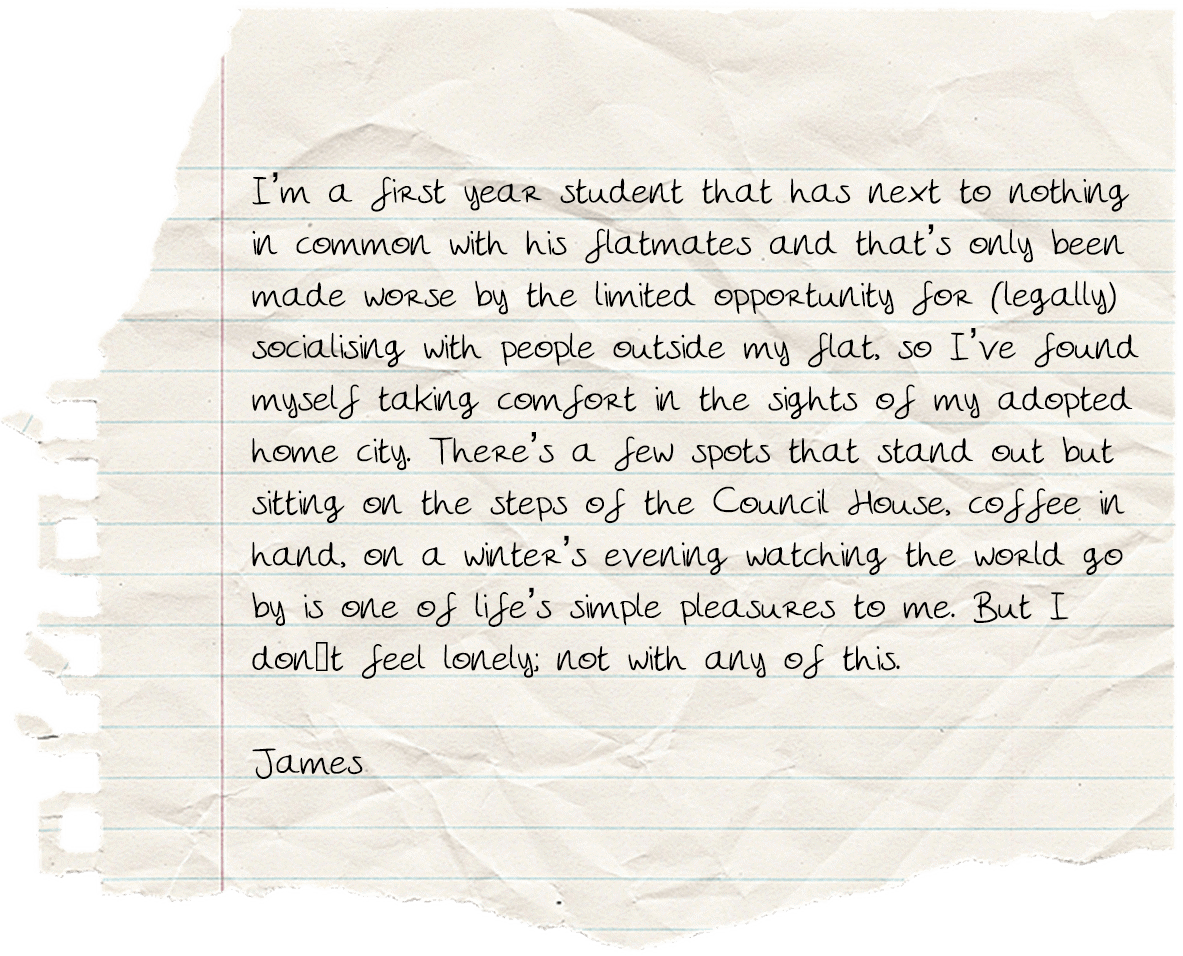 I’m a first year student that has next to nothing
in common with his flatmates and that’s only been
made worse by the limited opportunity for (legally)
socialising with people outside my flat, so I’ve found
myself taking comfort in the sights of my adopted
home city. There’s a few spots that stand out but
sitting on the steps of the Council House, coffee in
hand, on a winter’s evening watching the world go
by is one of life’s simple pleasures to me. But I
don▯t feel lonely; not with any of this.
James